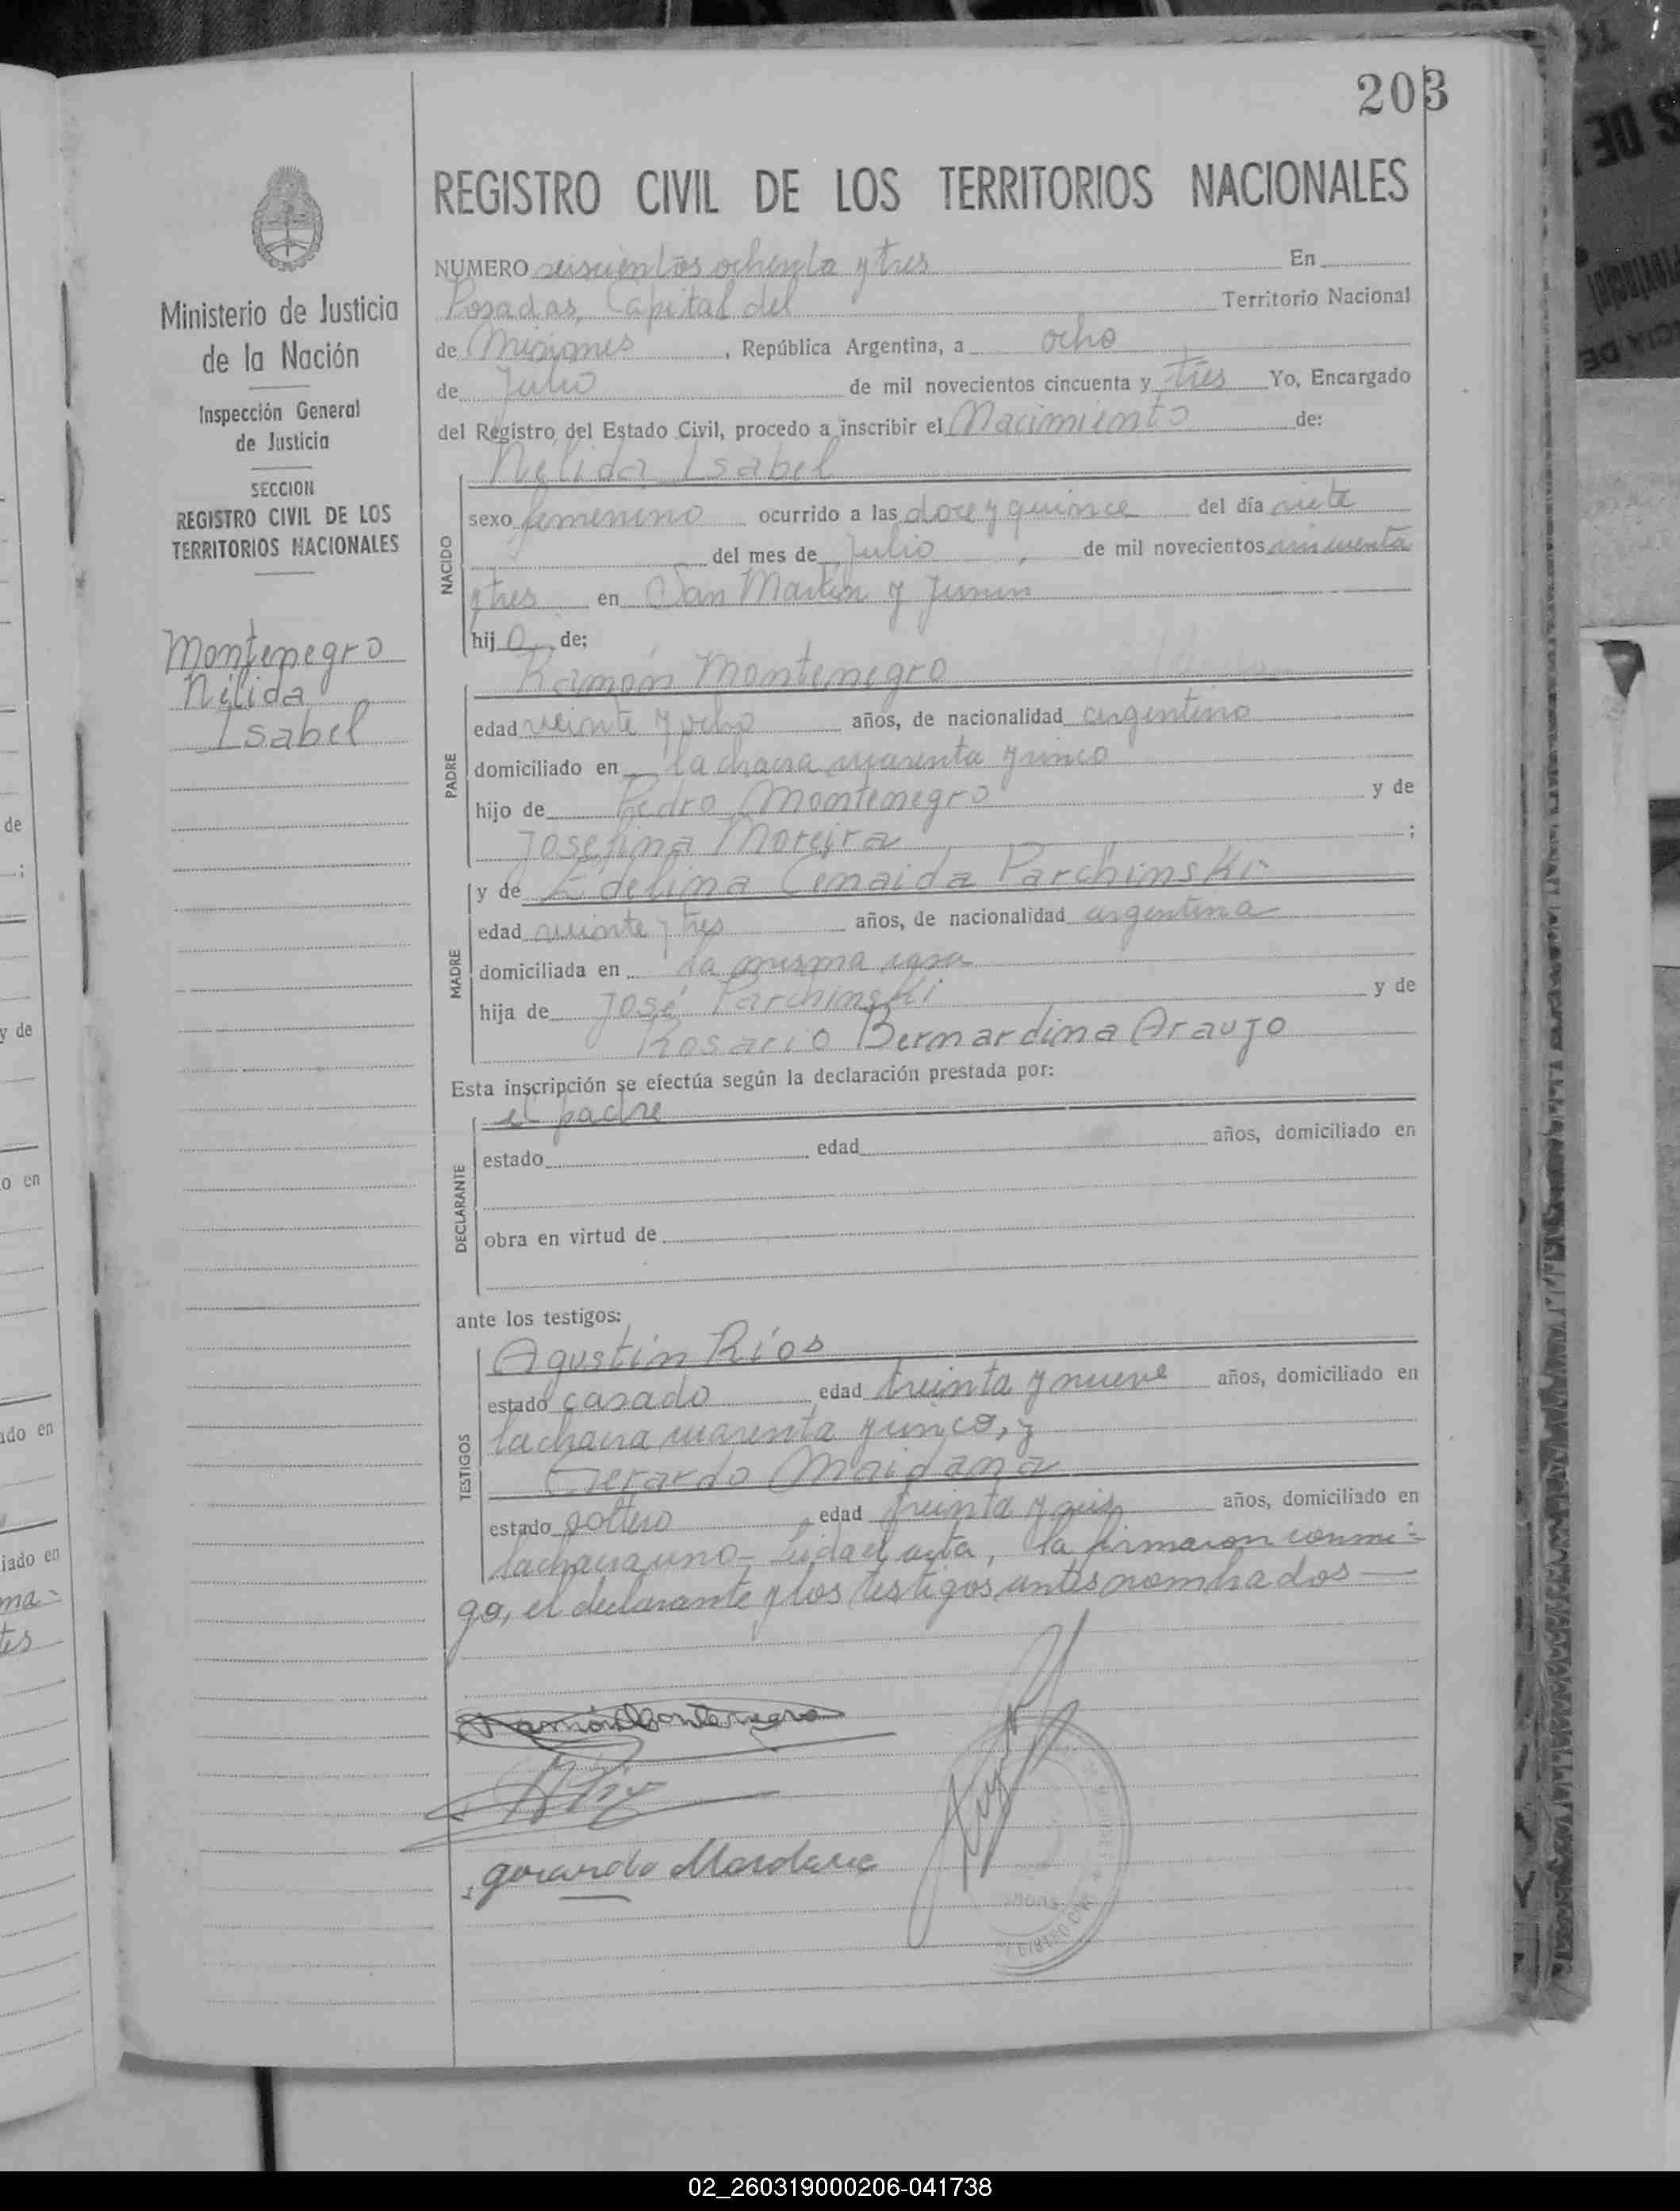 203
REGISTRO CIVIL DE LOS TERRITORIOS NACIONALES
Ministerio de Justicia
de la Nación
Inspección General
de Justicia
SECCION
REGISTRO CIVIL DE LOS
TERRITORIOS NACIONALES
Montenegro
Nélida
Isabel
NUMERO seiscientos ochenta y tres En
Posadas, Capital del Territorio Nacional
de Misiones, República Argentina, a ocho
de Julio de mil novecientos cincuenta y tres Yo, Encargado
del Registro del Estado Civil, procedo a inscribir el Nacimiento de:
NACIDO
Nélida Isabel
sexo femenino ocurrido a las doce y quince del día siete
del mes de Julio, de mil novecientos cincuenta
y tres en San Martín y Junín
hija de;
PADRE
Ramón Montenegro
edad veinte y ocho años, de nacionalidad argentino
domiciliado en la chacra cuarenta y cinco
hijo de Pedro Montenegro y de
Josefina Moreira;
MADRE
y de Edelina Cenaida Parchinski
edad veinte y tres años, de nacionalidad argentina
domiciliada en la misma casa
hija de José Parchinski y de
Rosario Bernardina Araujo
Esta inscripción se efectúa según la declaración prestada por:
DECLARANTE
el padre
estado edad años, domiciliado en
obra en virtud de
ante los testigos:
TESTIGOS
Agustín Ríos
estado casado edad treinta y nueve años, domiciliado en
la chacra cuarenta y cinco, y
Gerardo Maidana
estado soltero, edad treinta y seis años, domiciliado en
la chacra uno- Leída el acta, la firmaron conmi-
go, el declarante y los testigos antes nombrados
Ramón Montenegro
de
;
y de
o en
ado en
iado en
ma-
tes
02_260319000206-041738